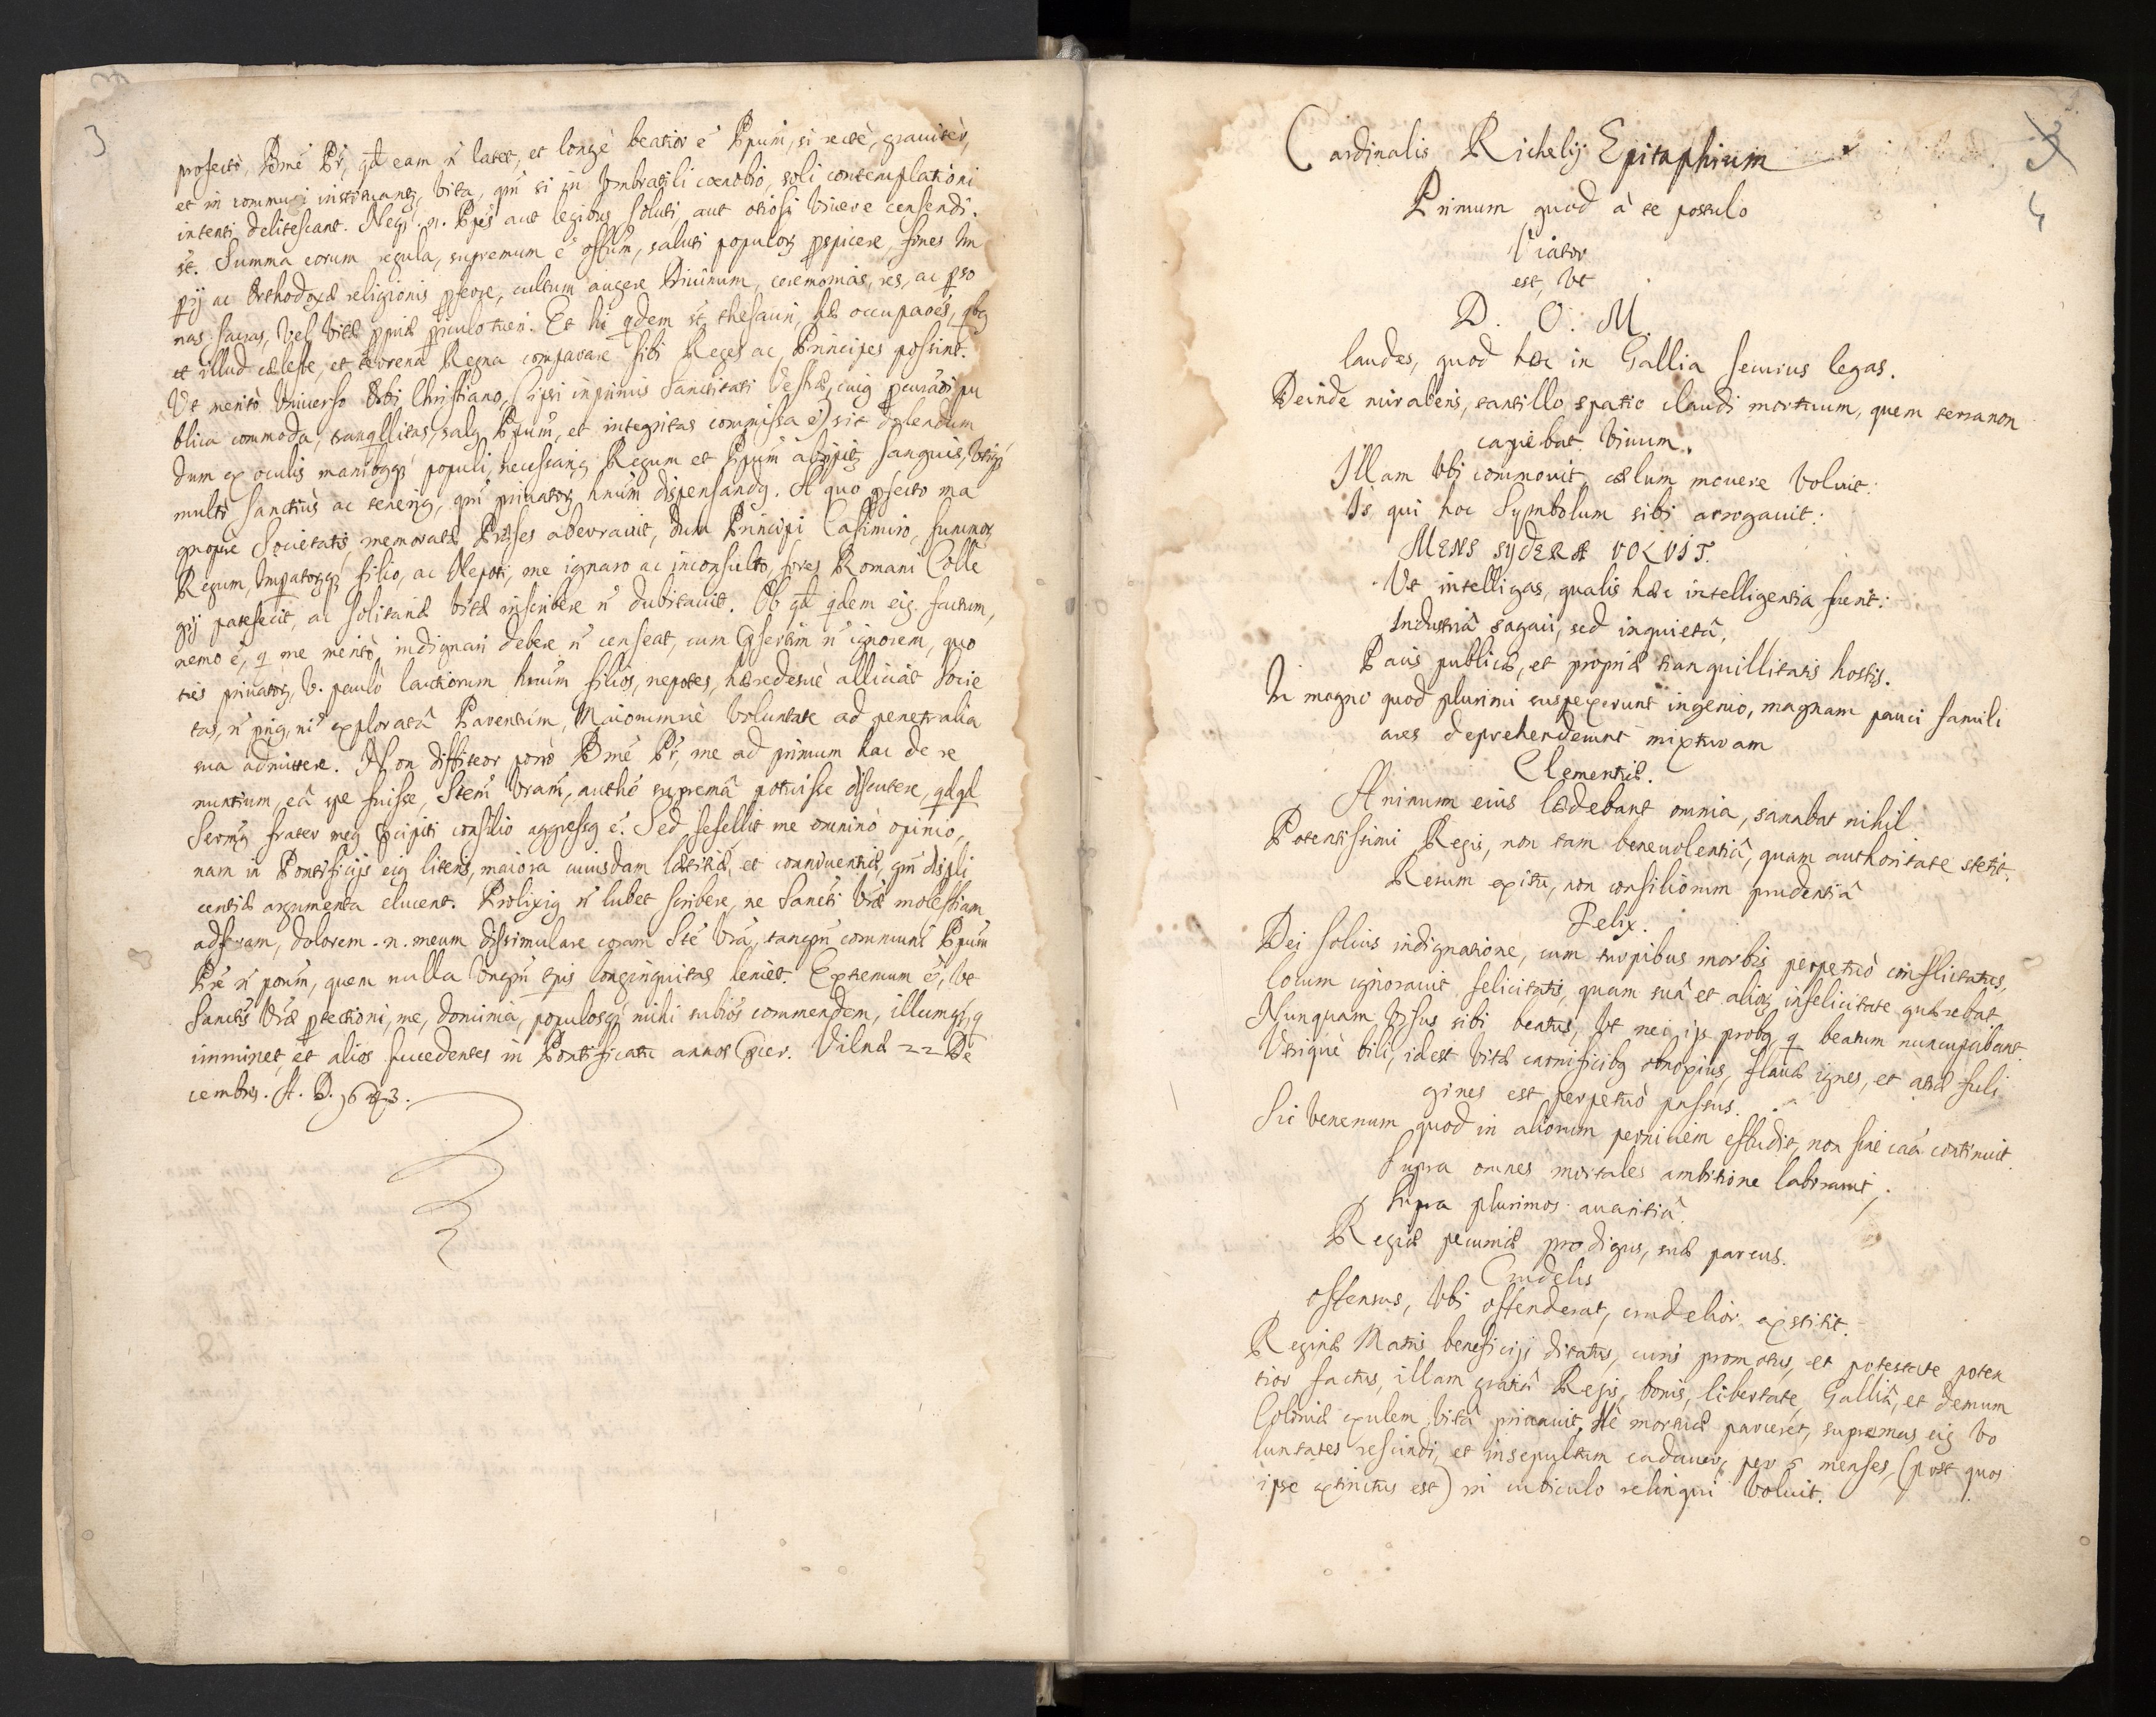 3
profectò, Bmē Pr, qd eam n̄ latet, et longè beatior ē Ppum, si rectè, grauitèr,
et in communi instituantʒ, vita, qm̄ si in Vmbratili coenobio, soli contemplationi
intenti delitescant. Neqʒ .n. Ppes aut legibus soluti, aut otiosi viuere censendi
st. Summa eorum regula, supremum ē offum, saluti populoꝝ pspicere, fines Im
pij ac Orthodoxæ religionis pferre, cultum augere Diuinum, ceremonias, res, ac pso
nas sacras, vel vitæ ppriæ piculo tueri. Et hi qdem st thesauri, hæ occupaōes, qbʒ
et illud cæleste, et terrena Regna comparare sibi Reges ac Principes possint.
Vt meritò Vniuerso Orbi Christiano, (ipsi inprimis Sanctitati Vestræ, cuiʒ pcuraōi pu
blica commoda, tranqllitas, salʒ Ppum, et integritas commissa ē) sit dolendum
dum ex oculis manibʒqʒ populi, necessariʒ Regum et Ppum abripitʒ sanguis,
multò sanctiùs ac teneriʒ, qm̄ priuatoꝝ hnum dispensandʒ. A quo pfecto ma
gnopere Societatis memoratæ Præses aberrauit, dum Principi Casimiro, summoꝝ
Regum, Impatoꝝqʒ filio, ac Nepoti, me ignaro ac inconsulto, fores Romani Colle
gij patefecit, ac solitariæ vitæ inscribere n̄ dubitauit. Ob qd qdem eiʒ factum,
nemo ē, q me meritò indignari debere n̄ censeat, cum psertim n̄ ignorem, quo
ties priuatoꝝ, V. paulò lautiorum hnum filios, nepotes, hæredesuè alliciat Socie
tas, n̄ priʒ, ni exploratâ Parentum, Maiorumuè voluntate ad penetralia
sua admittere. Non diffiteor porrò Bmē Pr, me ad primum hac de re
nuntium, eâ spe fuisse, Stem Vram, authē supremâ potuisse discutere, qdqd
Sermʒ frater meʒ pcipiti consilio aggressʒ ē. Sed fefellit me omninò opinio,
nam in Pontificijs eiʒ literis, maiora cuiusdam lætitiæ, et conniuentiæ, qm̄ displi
centiæ argumenta elucent. Prolixiʒ n̄ lubet scribere, ne Sancti Vræ molestiam
adferam, dolorem .n. meum dissimulare coram Stē Vrâ, tanqm̄ communi Ppum
Pre n̄ poum, quem nulla vnqm̄ tpis longinquitas leniet. Extremum ē, vt
Sanctis Vræ ptectioni, me, dominia, populosqʒ mihi subiōs commendem, illumqʒ, q
imminet, et alios succedentes in Pontificatu annos pcer. Vilnæ 22 De
cembris. A. D. 1643.
4
Cardinalis Richelij Epitaphium
Primum quod à te postulo
Viator
est, vt
D. O. M.
laudes, quod hæc in Gallia securius legas.
Deinde miraberis, tantillo spatio claudi mortuum, quem terra non
capiebat viuum.
Illam vbi commouit, cælum mouere voluit:
Is qui hoc Symbolum sibi arrogauit:
MENS SYDERA VOLVIT.
Vt intelligas, qualis hæc intelligentia fuerit:
Industriâ sagaci, sed inquietâ,
Pacis publicæ, et propriæ tranquillitatis hostis.
In magno quod plurimi suspexerunt ingenio, magnam pauci famili
ares deprehenderunt mixturam
Clementiæ.
Animum eius lædebant omnia, sanabat nihil
Potentissimi Regis, non tam beneuolentiâ, quam authoritate stetit.
Rerum exitu, non consiliorum prudentiâ
Felix.
Dei solius indignatione, cum turpibus morbis perpetuò conflictatus,
locum ignorauit felicitatis, quam suâ et alioꝝ infelicitate quærebat
Nunquam visus sibi beatus, vt nec ijs probʒ, q beatum nuncupabant.
Vtrique bili, idest vitæ carnificibʒ obnoxius, flauæ ignes, et atræ fuli
gines est perpetuò passus.
Sic venenum quod in aliorum perniciem effudit, non sine caâ continuit.
Supra omnes mortales ambitione laborauit,
Supra plurimos auaritiâ.
Regiæ pecuniæ prodigus, suæ parcus.
Crudelis
Offensus, vbi offenderat, crudelior exstitit.
Reginæ Matris beneficijs ditatus, curis promotus, et potestate poten
tior factus, illam gratiâ Regis, bonis, libertate, Galliâ, et demum
Coloniæ exulem vitâ priuauit, Nè mortuæ parceret, supremas eiʒ vo
luntates rescindi, et insepultum cadauer, per 5 menses, (post quos
ipse extinctus est) in cubiculo relinqui voluit.